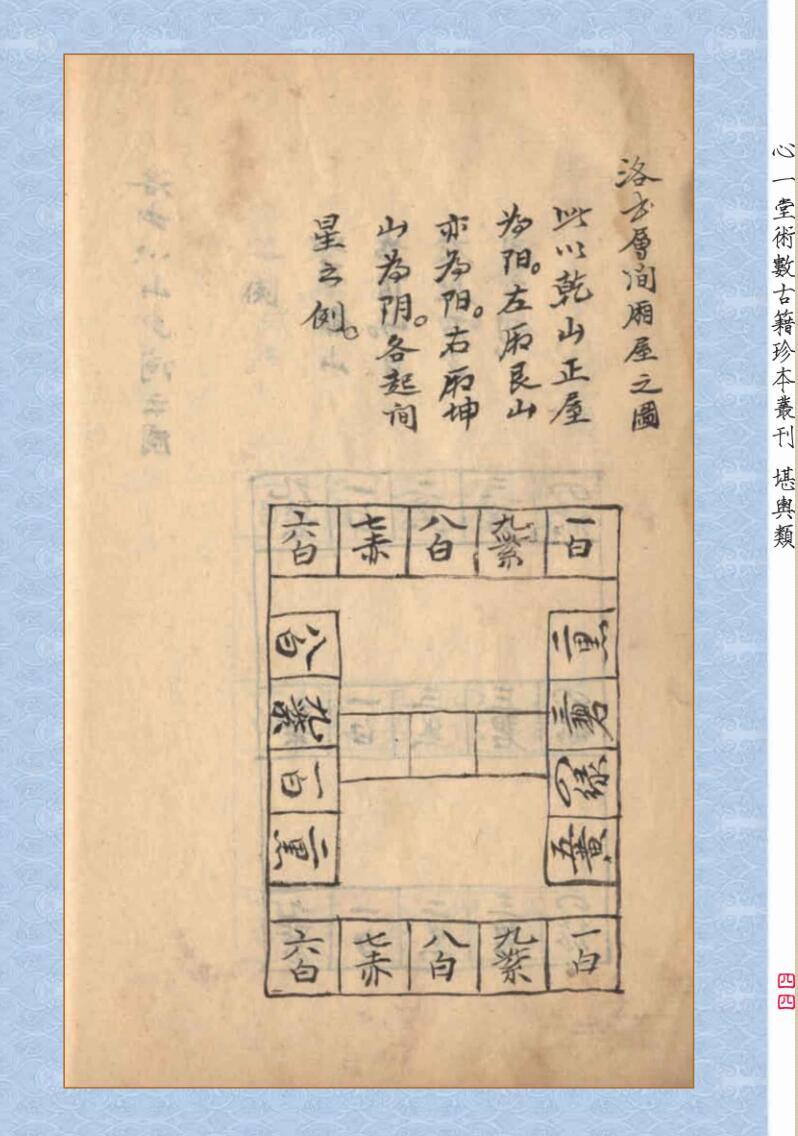 心一堂術數古籍珍本叢刊 堪輿類
洛书層间廂屋之圖
此以乾山正屋
为阳。左厢艮山
亦为阳。右厢坤
山为阴。各起间
星之例。
六白 七赤 八白 九紫 一白
八白
九紫
一白
二黑
二黑
三碧
四綠
五黃
六白 七赤 八白 九紫 一白
四四